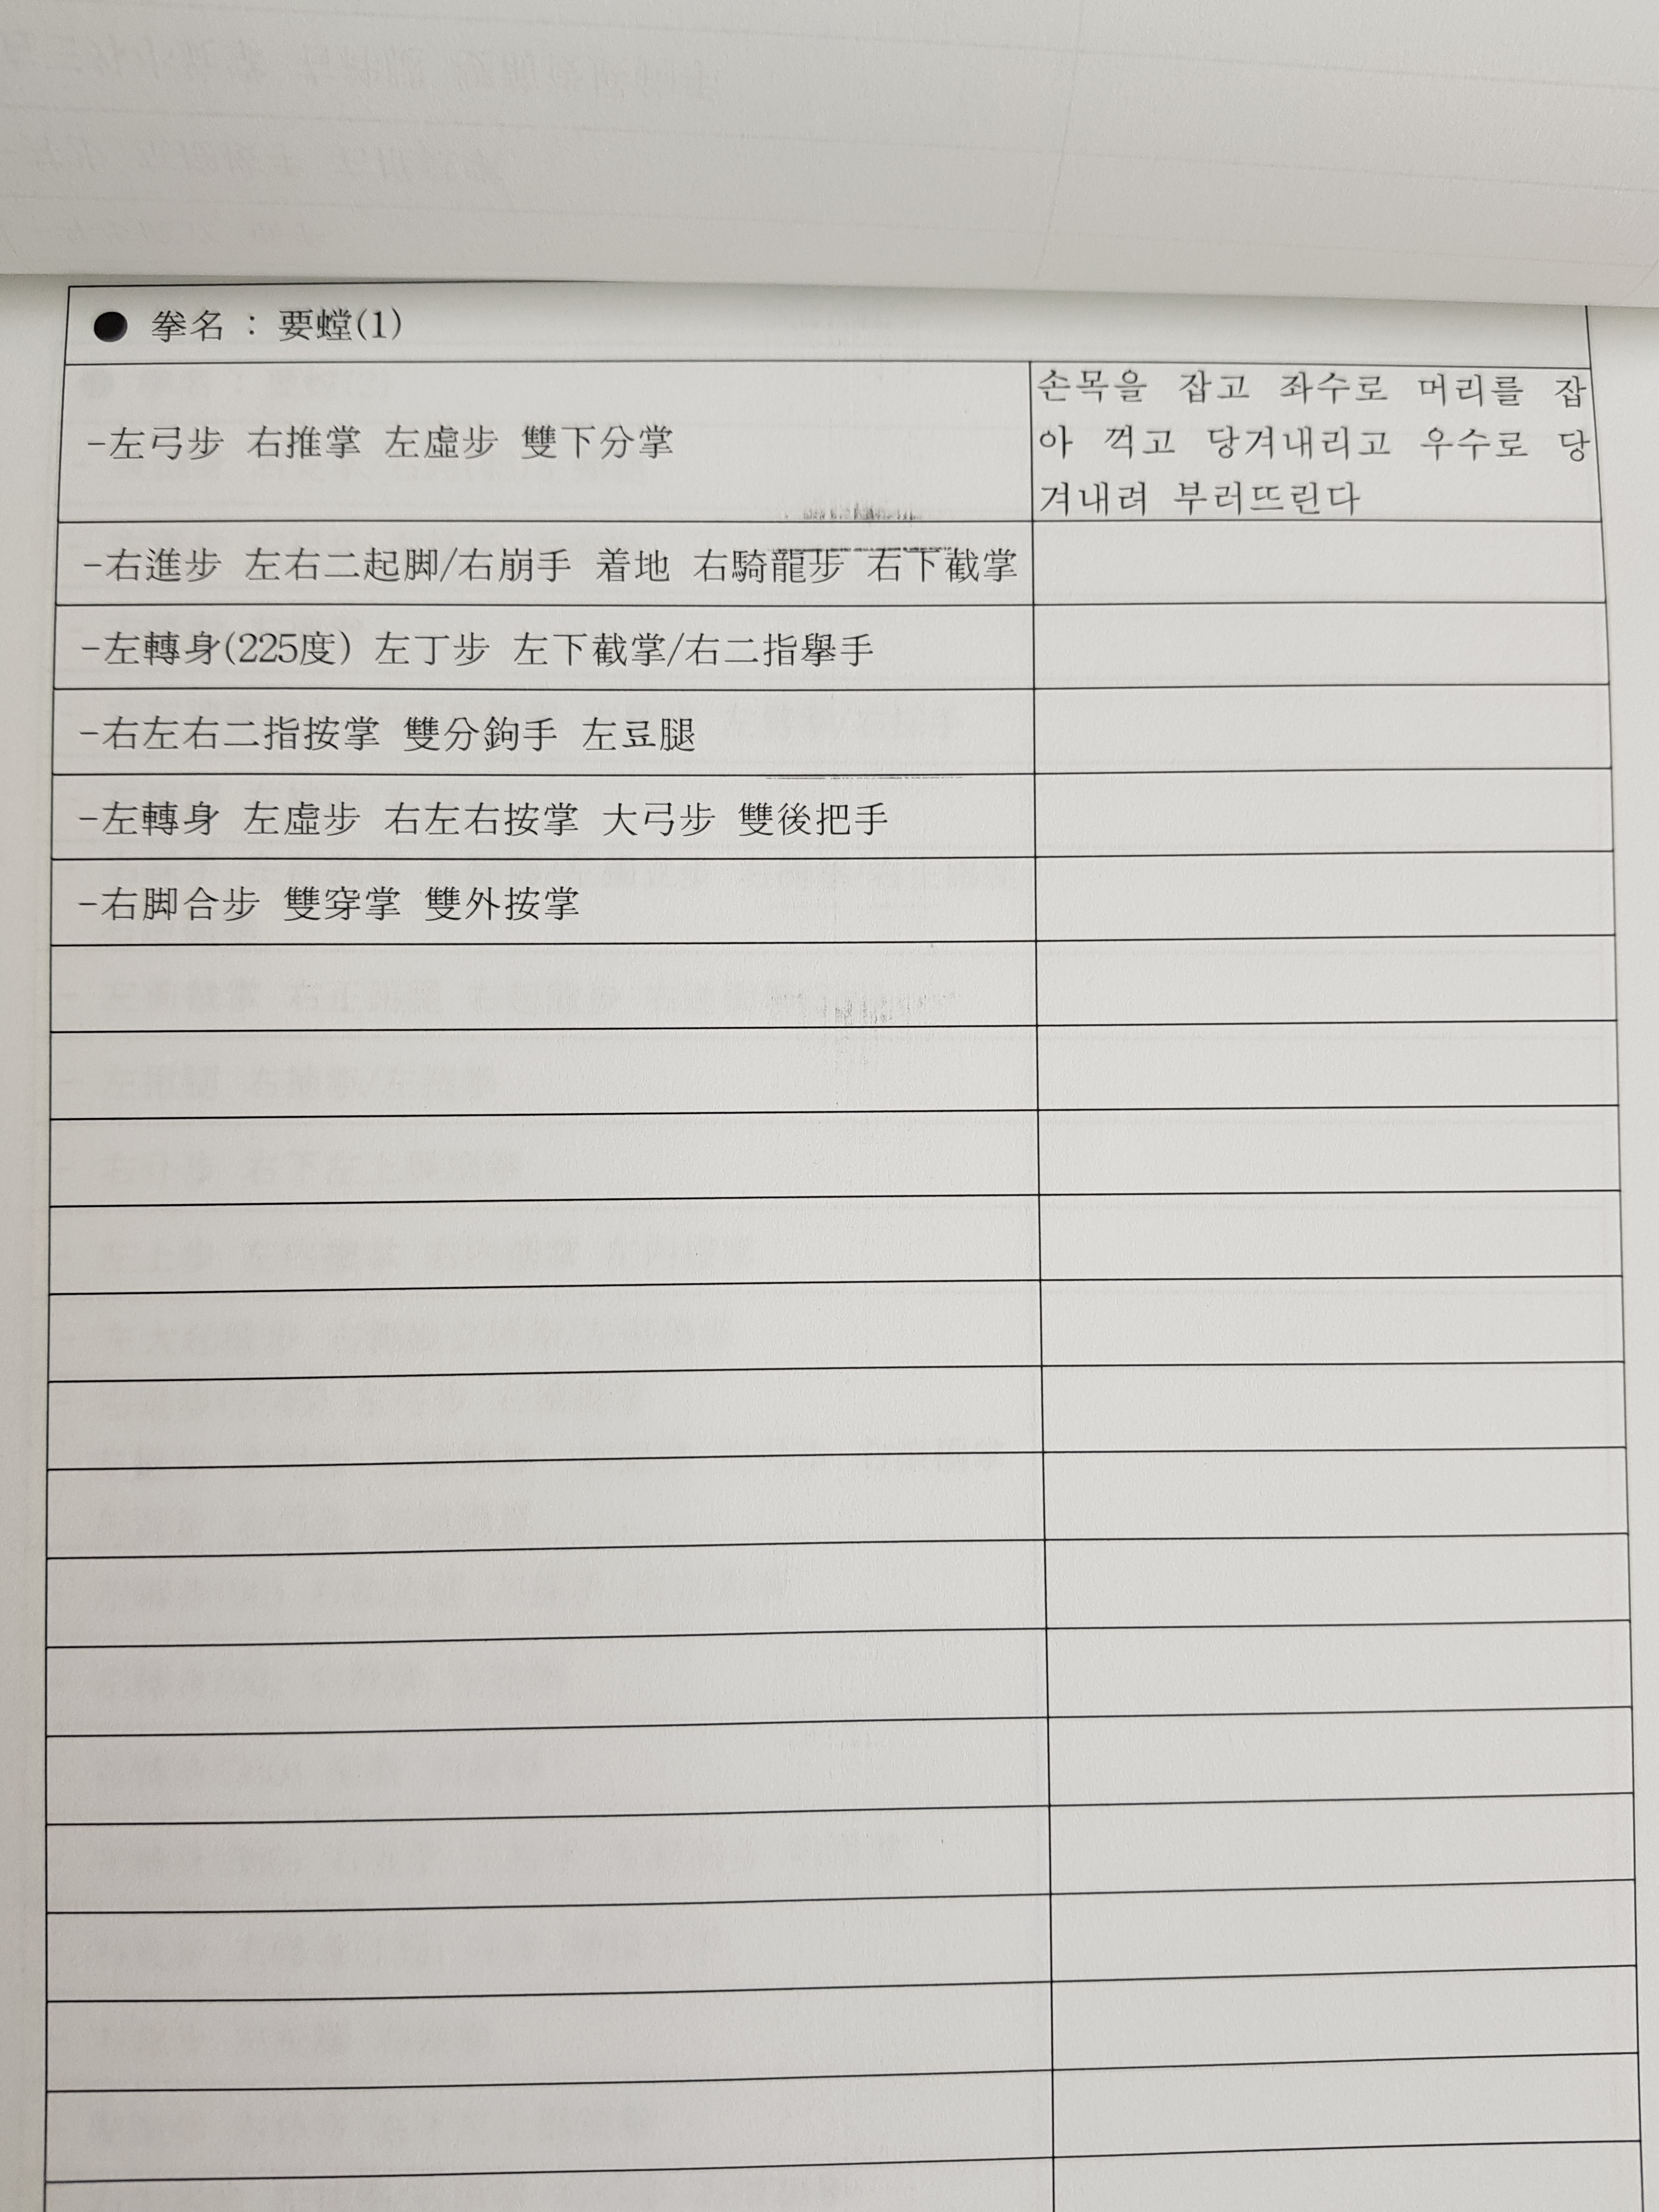 ● 拳名 : 要螳(1)
-左弓步 右推掌 左虛步 雙下分掌
손목을 잡고 좌수로 머리를 잡
아 꺽고 당겨내리고 우수로 당
겨내려 부러뜨린다
-右進步 左右二起脚/右崩手 着地 右騎龍步 右下截掌
-左轉身(225度) 左丁步 左下截掌/右二指擧手
-右左右二指按掌 雙分鉤手 左豆腿
-左轉身 左虛步 右左右按掌 大弓步 雙後把手
-右脚合步 雙穿掌 雙外按掌